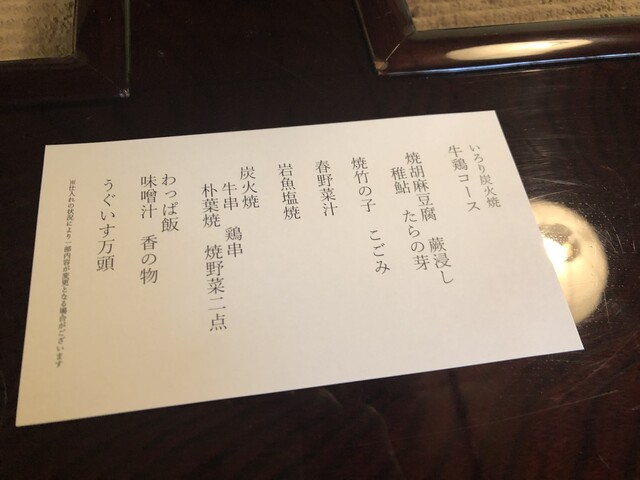 いろり炭火焼
牛鶏コース
焼胡麻豆腐 蕨浸し
稚鮎 たらの芽
焼竹の子 こごみ
春野菜汁
岩魚塩焼
炭火焼
牛串 鶏串
朴葉焼 焼野菜二点
わっぱ飯
味噌汁 香の物
うぐいす万頭
※仕入れの状況により一部内容が変更となる場合がございます